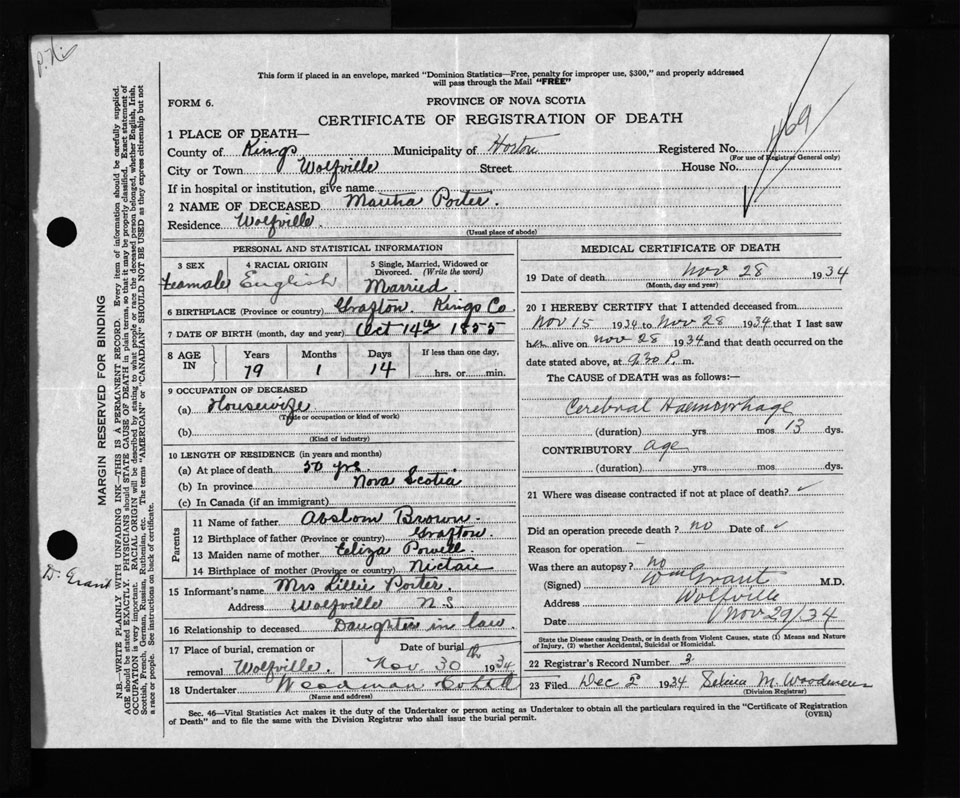 This form if placed in an envelope, marked "Dominion Statistics—Free, penalty for improper use, $300," and properly addressed
will pass through the Mail "FREE"
FORM 6.
PROVINCE OF NOVA SCOTIA
CERTIFICATE OF REGISTRATION OF DEATH
469
1 PLACE OF DEATH—
County of Kings Municipality of Horton Registered No.
(For use of Registrar General only)
City or Town Wolfville Street House No.
If in hospital or institution, give name
2 NAME OF DECEASED Martha Porter.
Residence Wolfville.
(Usual place of abode)
PERSONAL AND STATISTICAL INFORMATION
3 SEX 4 RACIAL ORIGIN 5 Single, Married, Widowed or
Divorced. (Write the word)
Feamale English Married.
6 BIRTHPLACE (Province or country) Grafton. Kings Co
7 DATE OF BIRTH (month, day and year) Oct 14th 1855
8 AGE IN Years Months Days If less than one day,
79 1 14 hrs. or min.
9 OCCUPATION OF DECEASED
(a) Housewife
(Trade or occupation or kind of work)
(b)
(Kind of industry)
10 LENGTH OF RESIDENCE (in years and months)
(a) At place of death 50 yrs.
(b) In province Nova Scotia
(c) In Canada (if an immigrant)
Parents
11 Name of father Abslom Brown.
12 Birthplace of father (Province or country) Grafton.
13 Maiden name of mother Eliza Powell
14 Birthplace of mother (Province or country) Nictau
15 Informant's name Mrs Lillie Porter.
Address Wolfville N.S
16 Relationship to deceased Daughter in law.
17 Place of burial, cremation or Date of burial
removal Wolfville. Nov. 30 th 1934
18 Undertaker Woodman
(Name and address)
MEDICAL CERTIFICATE OF DEATH
19 Date of death Nov 28 1934
(Month, day and year)
20 I HEREBY CERTIFY that I attended deceased from
Nov 15 1934 to Nov 28 1934 that I last saw
her alive on Nov 28 1934 and that death occurred on the
date stated above, at 9.30 P. m.
The CAUSE of DEATH was as follows:—
Cerebral Haemorrhage
(duration) yrs. mos. 13 dys.
CONTRIBUTORY age
(duration) yrs. mos. dys.
21 Where was disease contracted if not at place of death?
Did an operation precede death? no Date of
Reason for operation –
Was there an autopsy? no
(Signed) Wm Grant M.D.
Address Wolfville
Date Nov 29/34
State the Disease causing Death, or in death from Violent Causes, state (1) Means and Nature
of Injury, (2) whether Accidental, Suicidal or Homicidal.
22 Registrar's Record Number 3.
23 Filed Dec 5 1934 M.
(Division Registrar)
Sec. 46—Vital Statistics Act makes it the duty of the Undertaker or person acting as Undertaker to obtain all the particulars required in the "Certificate of Registration
of Death" and to file the same with the Division Registrar who shall issue the burial permit.
(OVER)
MARGIN RESERVED FOR BINDING
N.B.—WRITE PLAINLY WITH UNFADING INK—THIS IS A PERMANENT RECORD. Every item of information should be carefully supplied.
AGE should be stated EXACTLY. PHYSICIANS should STATE CAUSE OF DEATH in plain terms, so that it may be properly classified. Exact statement of
OCCUPATION is very important. RACIAL ORIGIN will be described by stating to what people or race the deceased person belonged, whether English, Irish,
Scottish, French, German, Russian, Ruthenian, etc. The terms "AMERICAN" or "CANADIAN" SHOULD NOT BE USED as they express citizenship but not
a race or people. See instructions on back of certificate.
Dr Grant